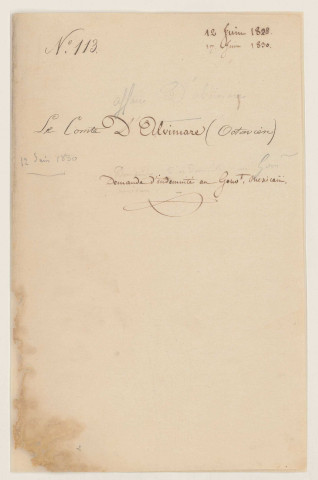 N.º 113.
12 Juin 1828.
17 Juin 1830.
Le Comte D'Alvimare (Octavien)
12 Juin 1830
Demande d'indemnité au Gouvt. Mexicain.